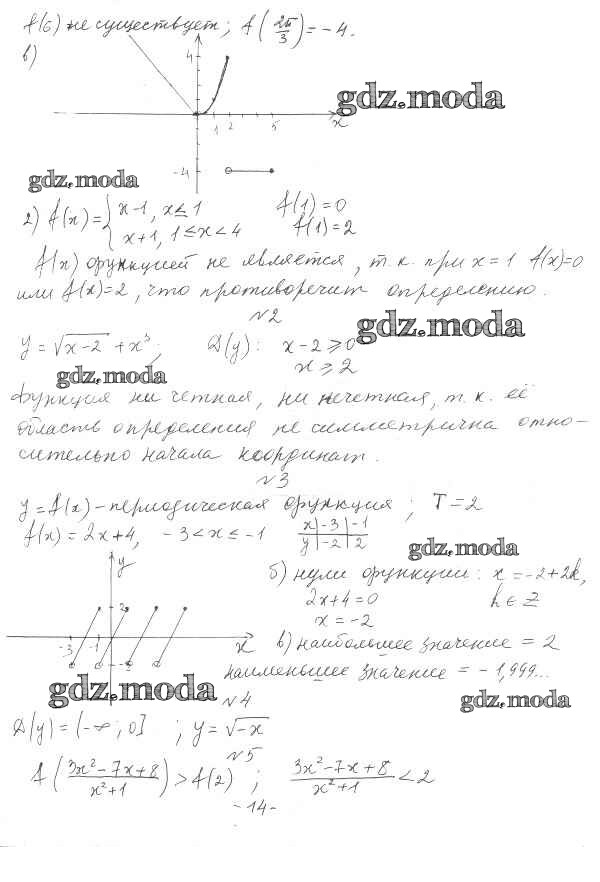 f(6) не существует; f(2π/3) = -4.
в)
4
1 2 5 x
gdz.moda
-4
gdz.moda
2) f(x) = { x-1, x ≤ 1 f(1) = 0
x+1, 1 ≤ x < 4 f(1) = 2
f(x) функцией не является, т.к. при x = 1 f(x)=0
или f(x)=2, что противоречит определению.
№2
gdz.moda
y = √x-2 + x³; D(y): x-2 ≥ 0
x ≥ 2
gdz.moda
Функция ни четная, ни нечетная, т.к. её
область определения не симметрична отно-
сительно начала координат.
№3
y = f(x) - периодическая функция; T = 2
f(x) = 2x+4, -3 < x ≤ -1 x | -3 | -1
y | -2 | 2
gdz.moda
y
б) нули функции: x = -2+2k,
2x+4 = 0 k ∈ Z
x = -2
2
-3 -1 x
-2
в) наибольшее значение = 2
наименьшее значение = -1,999...
gdz.moda
gdz.moda
№4
D(y) = (-∞; 0] ; y = √-x
№5
f((3x²-7x+8)/(x²+1)) > f(2) ; (3x²-7x+8)/(x²+1) < 2
-14-